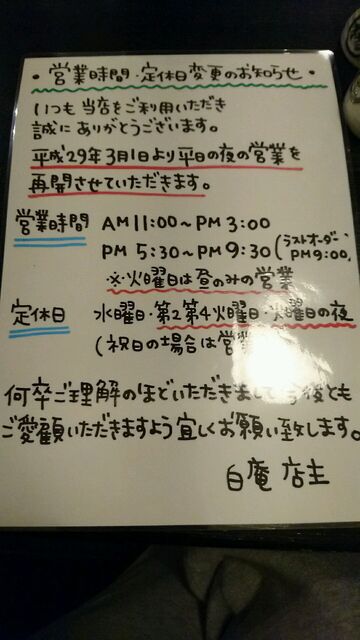 ・営業時間・定休日変更のお知らせ・
いつも当店をご利用いただき
誠にありがとうございます。
平成29年3月1日より平日の夜の営業を
再開させていただきます。
営業時間 AM11:00～PM3:00
PM5:30～PM9:30(ラストオーダー PM9:00)
※火曜日は昼のみの営業
定休日 水曜日・第2第4火曜日・火曜日の夜
(祝日の場合は営業
何卒ご理解のほどいただきまして今後とも
ご愛顧いただきますよう宜しくお願い致します。
白庵 店主